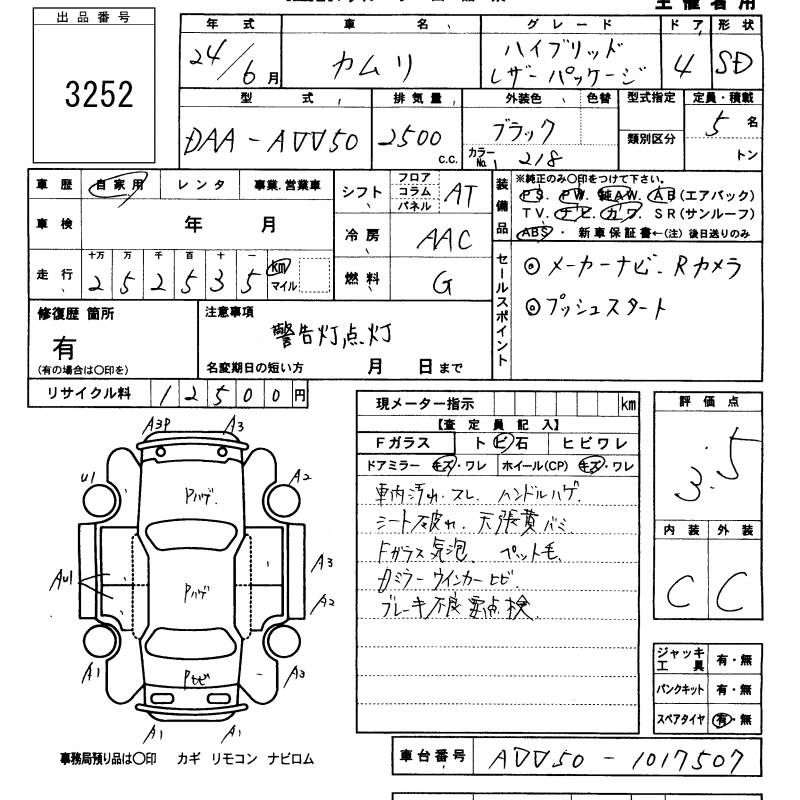 主催者用
出品番号
3252
年式 車名 グレード ドア 形状
24/6月 カムリ ハイブリッド レザーパッケージ 4 SD
型式 排気量 外装色 色替 型式指定 定員・積載
DAA-AVV50 2500 c.c. ブラック 類別区分 5名
カラーNo. 218 トン
車歴 自家用 レンタ 事業.営業車
シフト フロア コラム パネル AT
装備品 ※純正のみ○印をつけて下さい。
PS. PW. 純AW. AB(エアバック)
TV. ナビ. カワ. SR(サンルーフ)
ABS・ 新車保証書←(注) 後日送りのみ
車検 年 月
冷房 AAC
走行 十万 万 千 百 十 一
252535 km マイル
燃料 G
セールスポイント
◎メーカーナビ.Rカメラ
◎プッシュスタート
修復歴 箇所
有
(有の場合は○印を)
注意事項
警告灯点灯
名変期日の短い方 月 日まで
リサイクル料 12500円
現メーター指示 km
【査定員記入】
Fガラス トビ石 ヒビワレ
ドアミラー キズ・ワレ ホイール(CP) キズ・ワレ
車内汚れ.スレ. ハンドルハゲ.
シート破れ. 天張糞バミ
Fガラス気泡. ペット毛.
ミラーウインカーヒビ
ブレーキ不良要点検.
評価点
3.5
内装 外装
C C
A3P A3
U1 A2
Pハゲ.
AU1 A3
Pハゲ A2
A1 A3
Pヒビ
A1 A1
ジャッキ工具 有・無
パンクキット 有・無
スペアタイヤ 有・無
事務局預り品は○印 カギ リモコン ナビロム
車台番号 AVV50-1017507